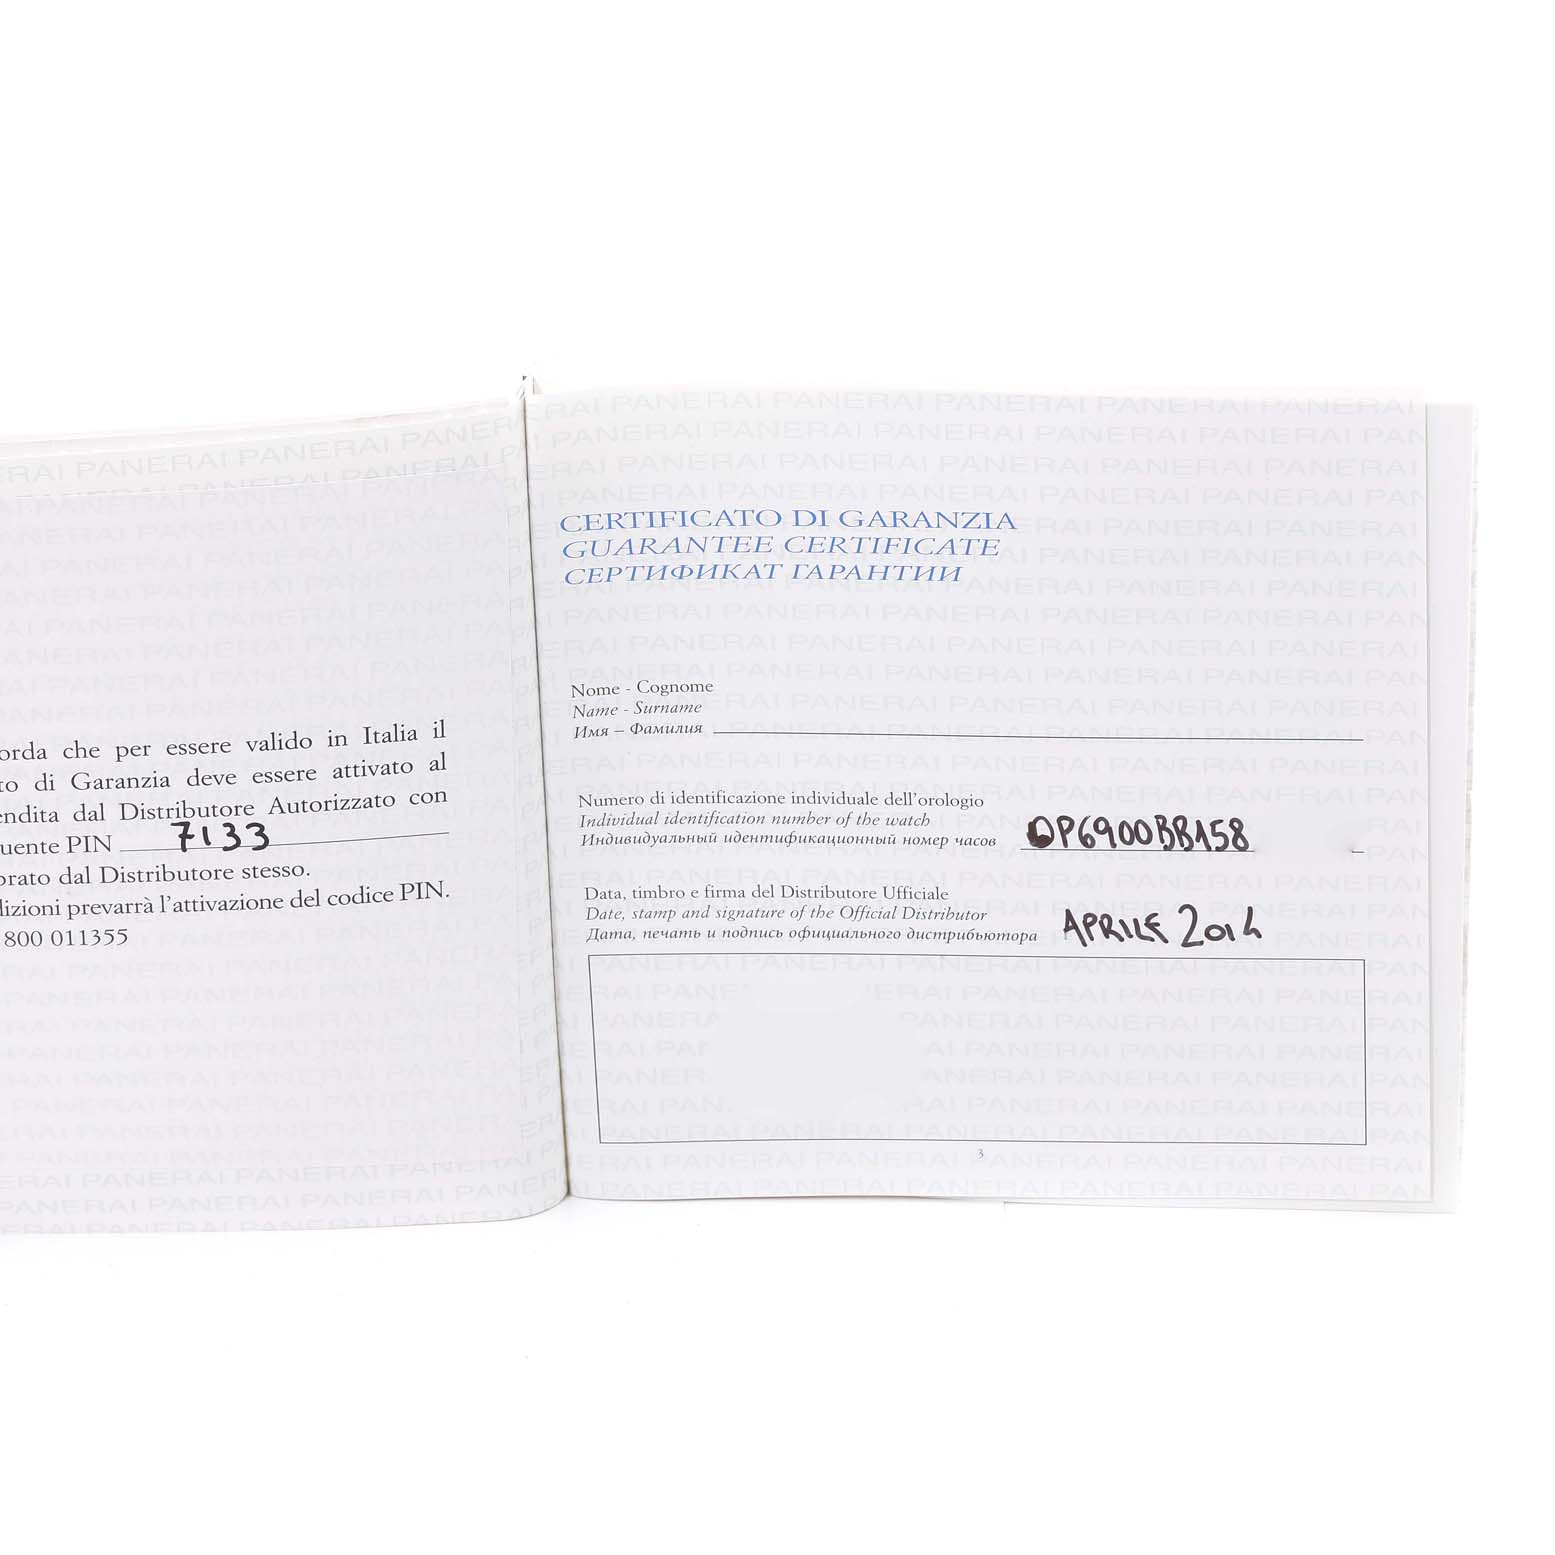 orda che per essere valido in Italia il
to di Garanzia deve essere attivato al
endita dal Distributore Autorizzato con
uente PIN 7133
orato dal Distributore stesso.
dizioni prevarrà l'attivazione del codice PIN.
800 011355
CERTIFICATO DI GARANZIA
GUARANTEE CERTIFICATE
СЕРТИФИКАТ ГАРАНТИИ
Nome - Cognome
Name - Surname
Имя – Фамилия
Numero di identificazione individuale dell'orologio
Individual identification number of the watch
Индивидуальный идентификационный номер часов OP6900BB158
Data, timbro e firma del Distributore Ufficiale
Date, stamp and signature of the Official Distributor
Дата, печать и подпись официального дистрибьютора APRILE 2014
3